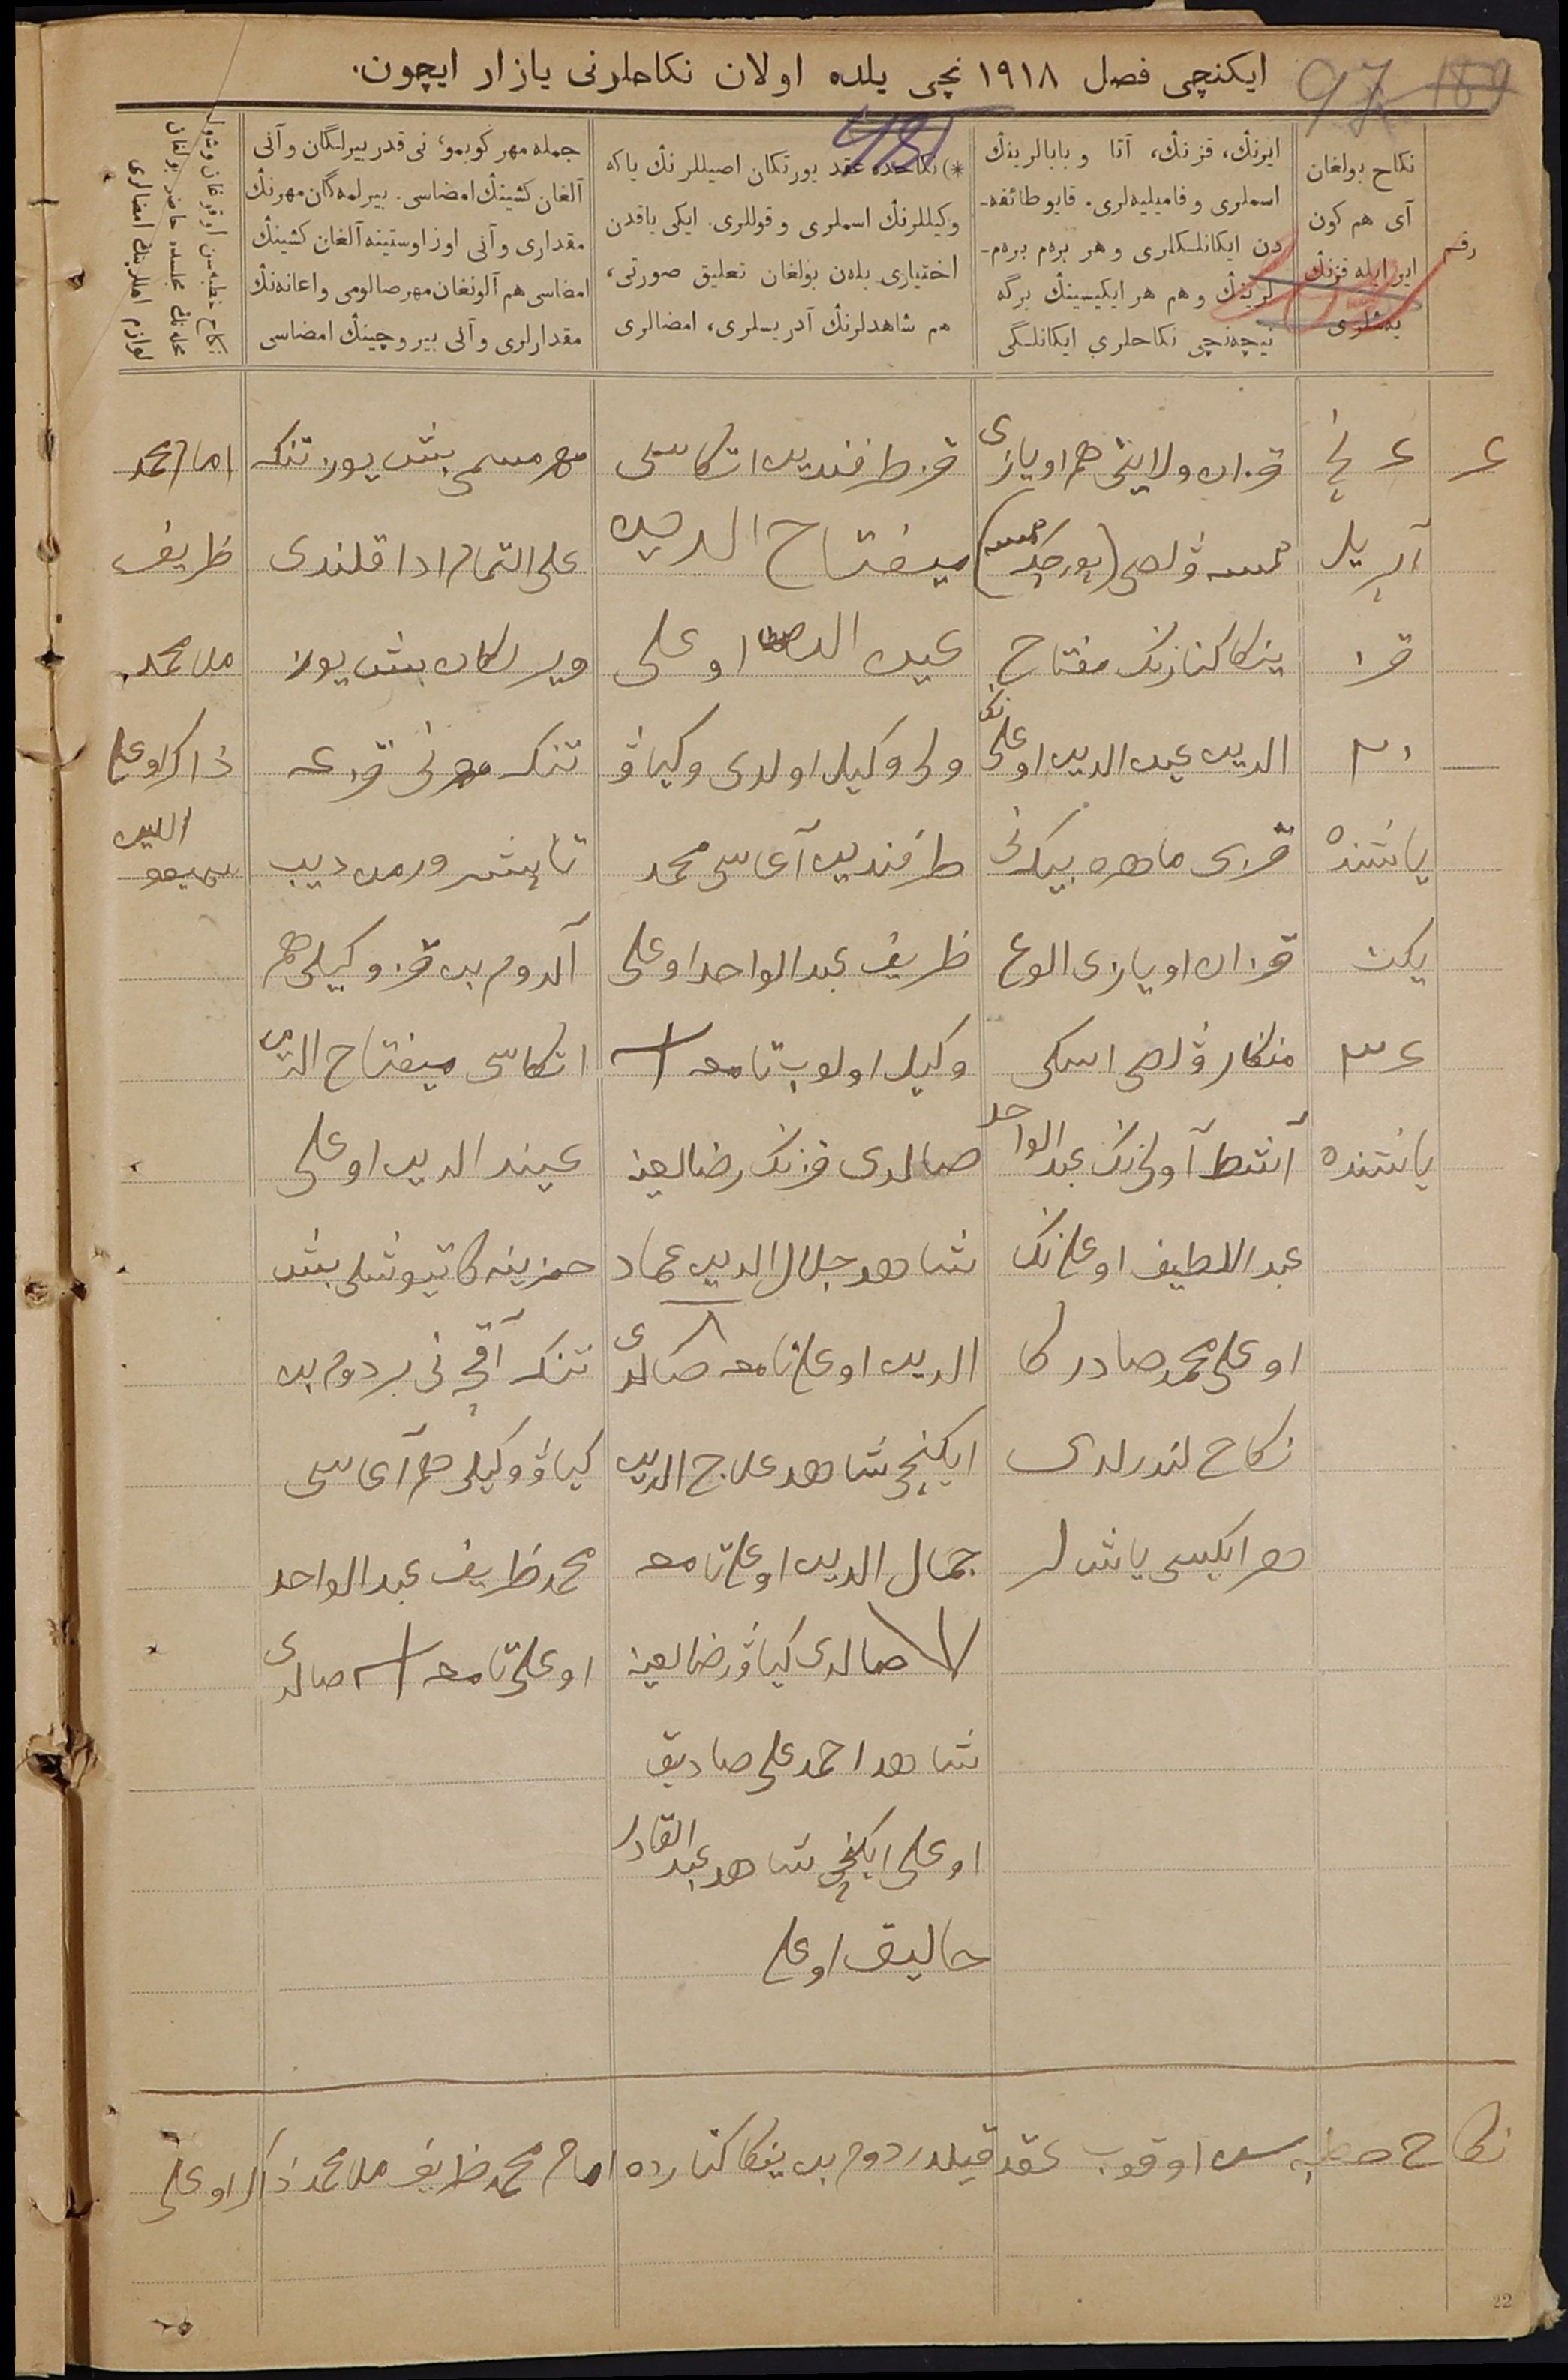 ایكنچی فصل ١٩١٨ نچی یلده اولان نكاحلرنی یازار ایچون.
97 189
481
رقم
نكاح بولغان
آی هم كون
ایر ایله قزنڭ
یه‌شلری
ایرنڭ، قزنڭ، آتا و بابالرینڭ
اسملری و فامیلیه‌لری. قایو طائفه-
دن ایكانلكلری و هر بره‌م بره‌م-
لرینڭ و هم هر ایكیسینڭ برگه
نیچه‌نچی نكاحلری ایكانلگی
*) نكاحده عقد یورتكان اصیللرنڭ یاكه
وكیللرنڭ اسملری و قوللری. ایكی یاقدن
اختیاری بله‌ن بولغان تعلیق صورتی،
هم شاهدلرنڭ آدریسلری، امضالری
جمله مهر كوبمو، نی قدر بیرلگان و آنی
آلغان كشینڭ امضاسی. بیرلمه‌گان مهرنڭ
مقداری و آنی اوز اوستینه آلغان كشینڭ
امضاسی هم آلونغان مهر صالومی و اعانه‌نڭ
مقدارلری و آنی بیروچینڭ امضاسی
نكاح خطبه‌سن اوقوغان وشول
محله‌نڭ مجلسده حاضر بولغان
لوازم اهللرینڭ امضالری
٤
٤ نچی
آپریل
قز
٢٠
یاشنده
یكت
٢٤
یاشنده
قزان ولایتی هم اویازی
ینكا كنارنڭ مفتاح
الدین عین الدین اوغلی نڭ
قزی ماهره بیكه نی
قزان اویازی الوغ
منكار ڤلصی اسكی
آشط آولی نڭ عبد الواحد
عبد اللطیف اوغلی نڭ
اوغلی محمد صادر كا
نكاح لندرلدی
هر ایكسی یاش لر
قز طرفندین اتكاسی
میفتاح الدین
عین الدین اوغلی
ولی وكیل اولدی وكیاڤ
طرفندین آغاسی محمد
ظریف عبد الواحد اوغلی
وكیل اولوب تامغه
صالدی قزنڭ رضالغینه
شاهد جلال الدین عماد
الدین اوغلی تامغه صالدی
ایكنچی شاهد علاج الدین
جمال الدین اوغلی تامغه
صالدی كیاڤ رضالغینه
شاهد احمد علی صادیق
اوغلی ایكنچی شاهد عبد القادر
خالیق اوغلی
مهر مسمی بش یوز تنكه
علی التمام ادا قلندی
ویرلكان بش یوز
تنكه مهرنی قزغه
تاپشرورمن دیب
آلدوم بن قز وكیلی هم
اتكاسی میفتاح الدین
عیند الدین اوغلی
حزینه كا تیوشلی بش
تنكه آقچه نی بردوم بن
كیاڤ وكیلی هم آغاسی
محمد ظریف عبد الواحد
اوغلی تامغه صالدی
امام محمد
ظریف
ملا محمد
ذاكر اوغلی
نكاح خطبه سن اوقوب عقد قیلدردوم بن ینكا كنارده امام محمد ظریف ملا محمد ذاكر اوغلی
22